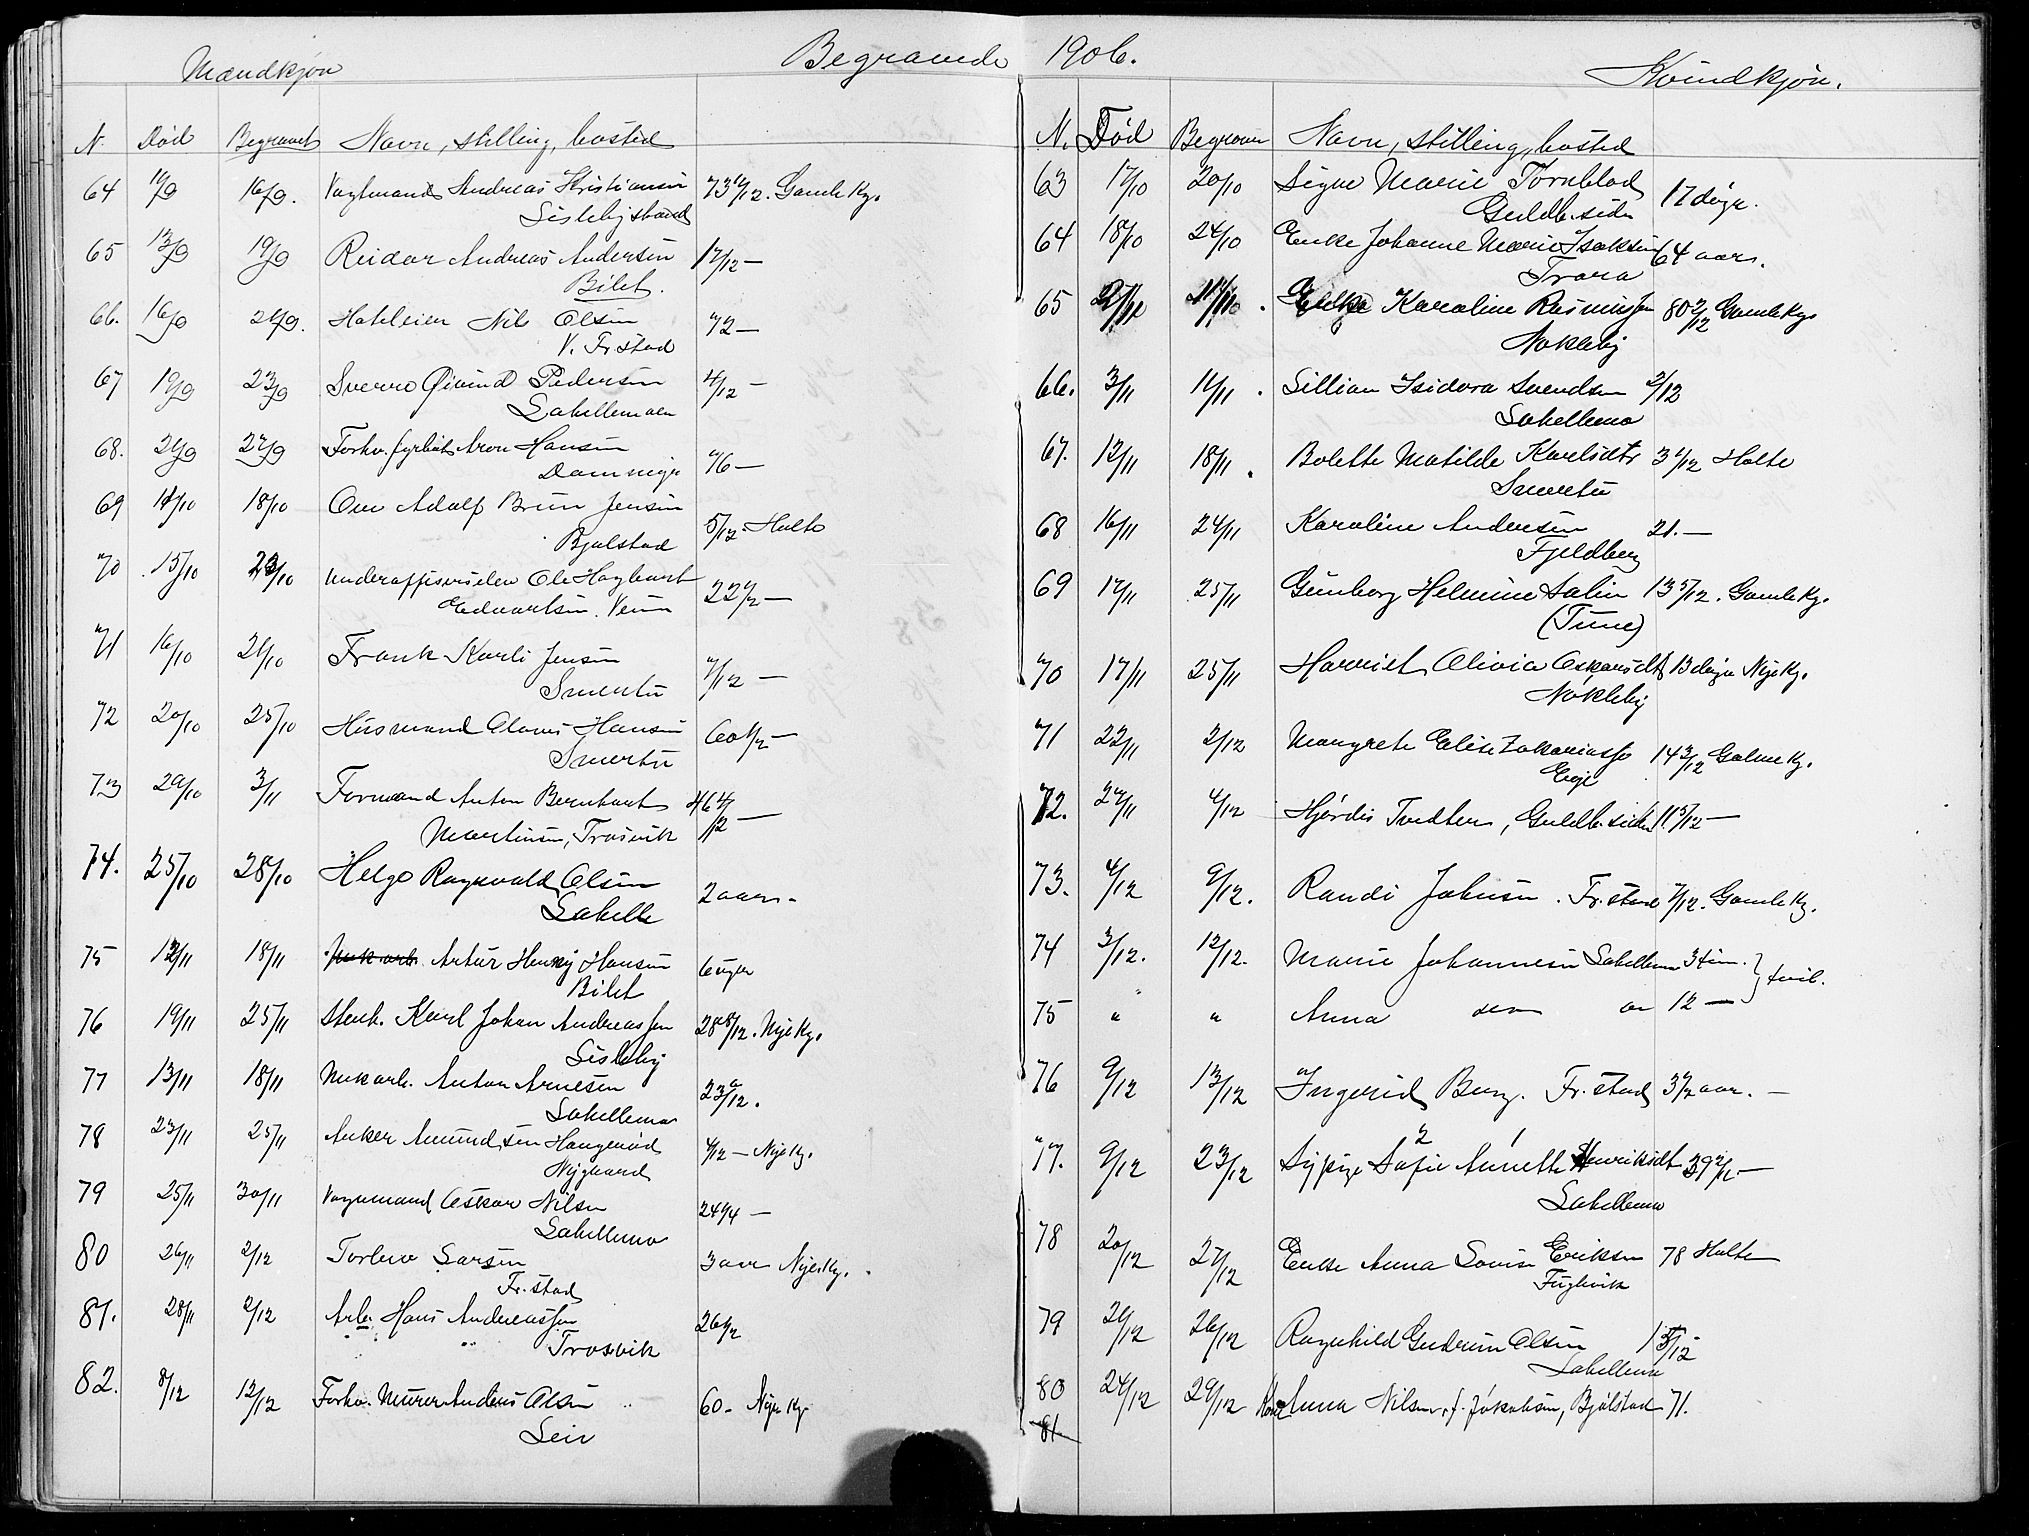 Mændkjøn
Begravede 1906.
N. Død Begravet Navn, stilling, bosted
64 11/9 16/9. Vagtmand Andreas Kristiansen 73 10/12. Gamle Kg.
Sislebystrand
65 13/9 19/9 Reidar Andreas Andersen 17/12 —
Bilet.
66. 16/9 20/9. Huseier Nils Olsen 72 —
V. Fr.stad
67 19/9 23/9 Sverre Øivind Pedersen 4/12 —
Lahellemoen
68. 24/9 27/9 Forhv. fyrbøt. Aron Hansen 76 —
Dammyr
69 14/10 18/10 Ove Adolf Brun Jensen 5/12. Holte
Bjølstad
70 15/10 23/10 Underoffiserselev Ole Hagbart 22 1/2 —
Edvartsen. Veum
71 16/10 21/10 Frank Karli Jensen 7/12 —
Smertu
72 20/10 25/10 Husmand Olaves Hansen 60 1/2 —
Smertu
73 29/10 3/11 Formand Anton Bernhart 46 4/12 —
Martinsen, Trosvik
74. 25/10 28/10 Helge Ragnvald Olsen 2 aar. -
Lahelle
75 13/11 18/11 Artur Henry Hansen 6 uger
Bilet
76 19/11 25/11 Stenh. Karl Johan Andreassen 28 8/12. Nye Kg.
Sisleby
77 13/11 18/11 Mekarb. Anton Arnesen 23 9/12.
Lahellemo
78 23/11 25/11 Anker Amundsen Haugerød 4/12 — Nye Kg.
Nygaard
79 25/11 30/11 Vognmand Oskar Nilsen 24 3/4 —
Lahellemo
80 26/11 2/12 Torlew Larsen 3 aar Nye Kg.
Fr.stad
81. 28/11 2/12 Arb. Hans Andreassen 26 1/2
Trosvik
82. 8/12 12/12 Forhv. Murer Anders Olsen 60 - Nye Kg.
Leie
Kvindkjøn.
N. Død Begraven Navn, stilling, bosted
63 17/10 20/10 Signe Marie Tørnblad 17 døgn.
Guldb.siden
64 18/10 24/10 Enke Johanne Marie Isaksen 64 aar.
Trara
65 2/11 11/11. Enke Karoline Rasmussen 80 2/12 Gamle Kg.
Nøkleby
66. 3/11 11/11. Lillian Isidora Svendsen 2/12
Lahellemo
67. 12/11 18/11. Bolette Matilde Karlsdtr 3 1/12 Holte
Smertu
68 16/11 24/11 Karoline Andersen 21. —
Fjeldberg
69 17/11 25/11 Gunborg Helmine Salin 13 5/12. Gamle Kg.
(Tune)
70 17/11 25/11 Harriet Olivia Oskarsdt 13 døgn Nye Kg.
Nøkleby
71 22/11 2/12 Margrete Elise Zakariassen 14 3/12 Galme Kg.
Evje
72. 27/11 4/12 Hjørdis Tvedter, Guldb.siden 11 5/12 —
73. 4/12 9/12. Randi Johnsen. Fr.stad 7/12. Gamle Kg.
74 3/12. 12/12. Marie Johannesen Lahellemo 3 tim. } tvil.
75 " " Anna sen on 12 —
76 9/12 13/12 Ingerid Berg. Fr.stad 3 1/2 aar. —
77. 9/12 23/12 Sypige Sofie Annette Henriksdt 39 2/12 —
2 1
Lahellemo
78 20/12 27/12 Enke Anna Lovise Eriksen 78 Holte
Fuglevik
79 21/12 26/12 Ragnhild Gudrun Olsen 1 5/12
Lahellemo
80 24/12 29/12 Kone Anna Nilsen, f. Jakobsen, Bjølstad 71.
81